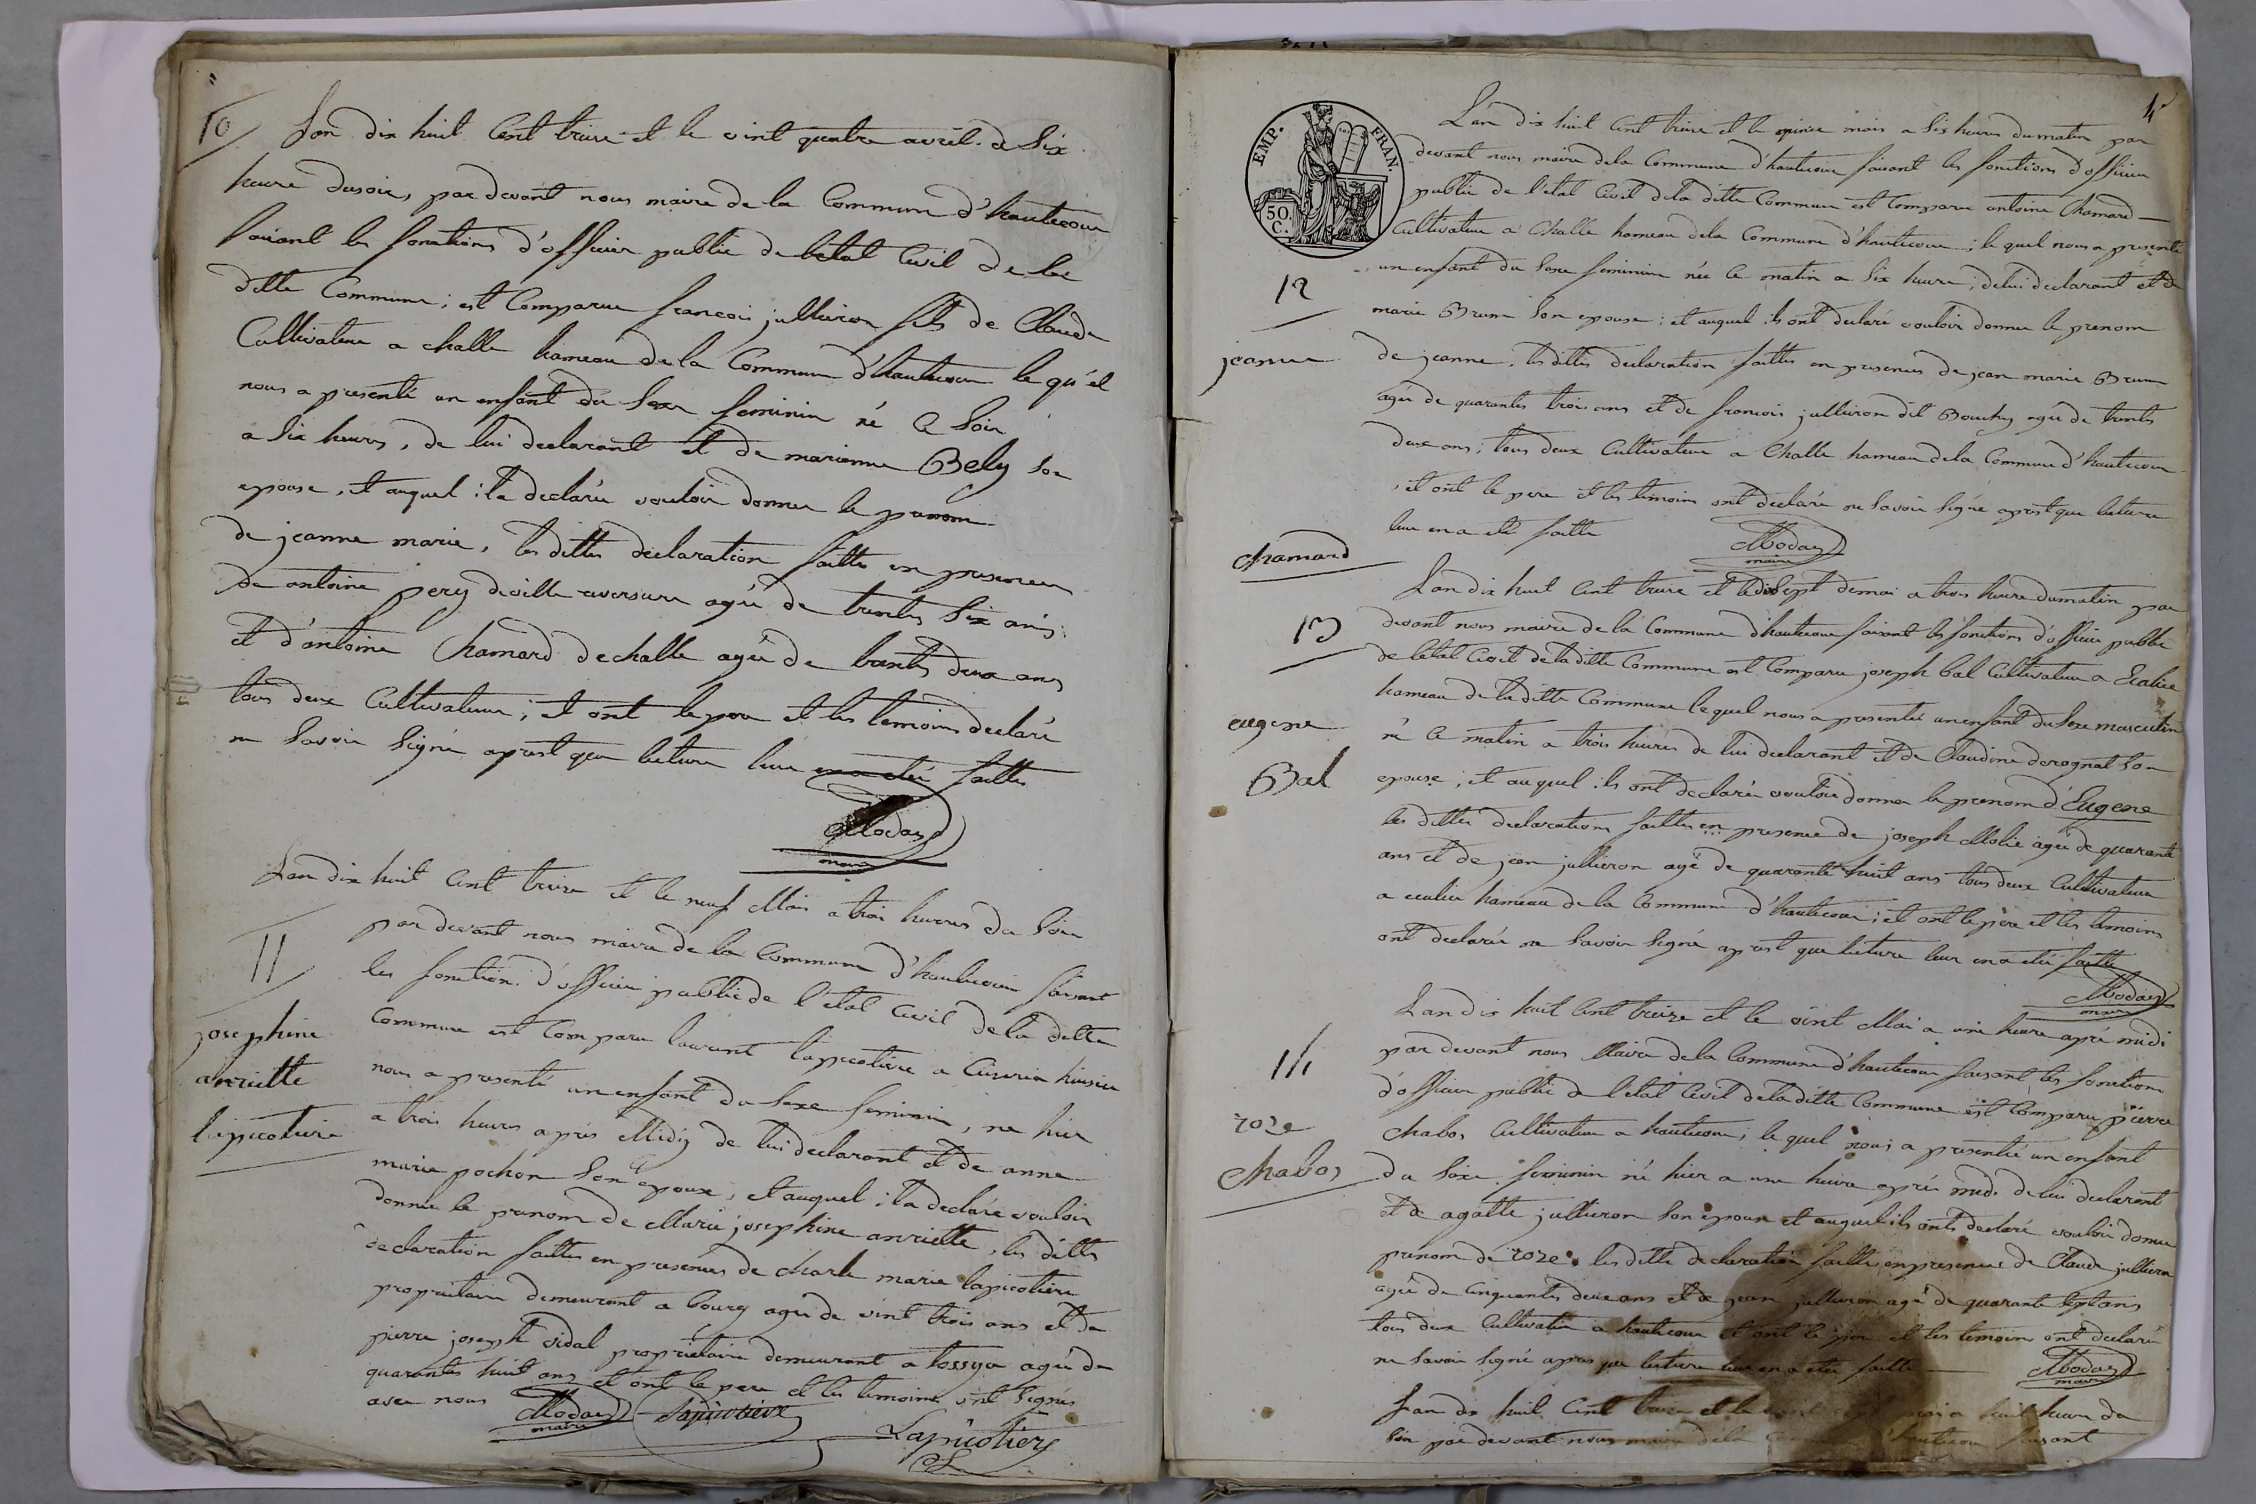 10
L'an dix huit Cent treize et le vint quatre avril a Six
heure dusoir, par devant nous maire de la Commune d'hautecour
faisant les fonctions d'officier public de letat Civil de la
ditte Commune; est Comparu francois jullieron fils de Claude
Cultivateur a challe hameau de la Commune d'hautecour le qu'el
nous a presenté un enfant du Sexe feminin né Ce Soir
a Six heures, de lui declarant et de marianne Bely son
epouse, et auquel il a declarée vouloir donner le prenom
de jeanne marie, les dittes declaration faittes en presences
de antoine pery deville aversure agée de trente Six ans
et d'antoine Chamard de challe agée de trente deux ans
tous deux Cultivateurs; et ont le pere et les temoins declaré
ne Savoir Signé aprest que lecture leur en a etée faitte
Moday
maire
L'an dix huit Cent treize et le neuf Mai a trois heures du Soir
11
par devant nous maire de la Commune d'hautecour faisant
les fonction d'officier public de l'etat Civil de la ditte
Commune est Comparu laurent lapicotiere a
nous a presenté un enfant du Sexe feminin, ne hier
a trois heures après Midy de lui declarant et de anne
marie pochon Son epouse, et auquel il a declaré vouloir
donner le prenom de Marie josephine anriette, les dittes
declaration faittes en presences de charle marie lapicotiere
propriétaire demeurant a bourg agée de vint trois ans et de
pierre joseph vidal propriétaire demeurant a tossya agée de
quarante huit ans et ont le pere et les temoins ont Signés
avec nous
josephine
anriette
lapicotiere
Moday
maire
Lapicotiere
Lapicotiere
4
EMP. FRAN.
50.
C.
L'an dix huit Cent treize et le quinze mais a Six heures du matin par
devant nous maire dela Commune d'hautecour faisant les fonctions d'officier
public de l'etat Civil dela ditte Commune est Comparu antoine Chamard
Cultivateur a Challe hameau dela Commune d'hautecour; le quel nous a presenté
un enfant du Sexe feminin née Ce matin a Six heure; de lui declarant et de
12
marie Brun Son epouse: et auquel ils ont declaré vouloir donner le prenom
jeanne
de jeanne, les dittes declaration faittes en presences de jean marie Brun
agée de quarante trois ans et de francois jullieron dit Bouchy agée de trente
deux ans; tous deux Cultivateur a Challe hameau dela Commune d'hautecour
et ont le pere et les temoins ont declarée ne Savoir Signé aprest que lecture
leur en a ete faitte
chamard
Moday
maire
L'an dix huit Cent treize et le dix Sept de mai a trois heure du matin par
13
devant nous maire de la Commune d'hautecour faisant les fonctions d'officier public
de letat Civil de la ditte Commune est Comparu joseph bal Cultivateur a
hameau de la ditte Commune le quel nous a presentée un enfant du Sexe masculin
eugene
né Ce matin a trois heures de lui declarant et de Claudine derognat Son
Bal
epouse; et auquel ils ont declarée vouloir donner le prenom d'Eugene
les dittes declarations faittes en presence de joseph Molie agée de quarante
ans et de jean jullieron agé de quarante huit ans tous deux Cultivateur
a hameau de la Commune d'hautecour; et ont le pere et les temoins
ont declarée ne Savoir Signé aprest que lecture leur en a etée faitte
Moday
maire
L'an dix huit Cent treize et le vint Mai a une heure aprè midi
14
par devant nous Maire dela Commune d'hautecour faisant les fonction
d'officier public de l'etat Civil dela ditte Commune est Comparu pierre
roze
Chabos
chabos Cultivateur a hautecour; le quel nous a presentée un enfant
du Sexe feminin né hier a une heure aprés midi de lui declarant
et de agatte jullieron Son epouse et auquel ils onts declaré vouloir donner
prenom de roze les ditte declaration faitte en presence de Claude jullieron
agée de Cinquante deux ans et de jean jullieron agé de quarante Sept ans
tous deux Cultivateur a hautecour et ont le pere et les temoins ont declaré
ne Savoir Signé après que lecture leur en a etée faitte
Moday
maire
L'an dix huit Cent treize et le vint mai a huit heure du
Soir par devant nous maire dela d'hautecour faisant